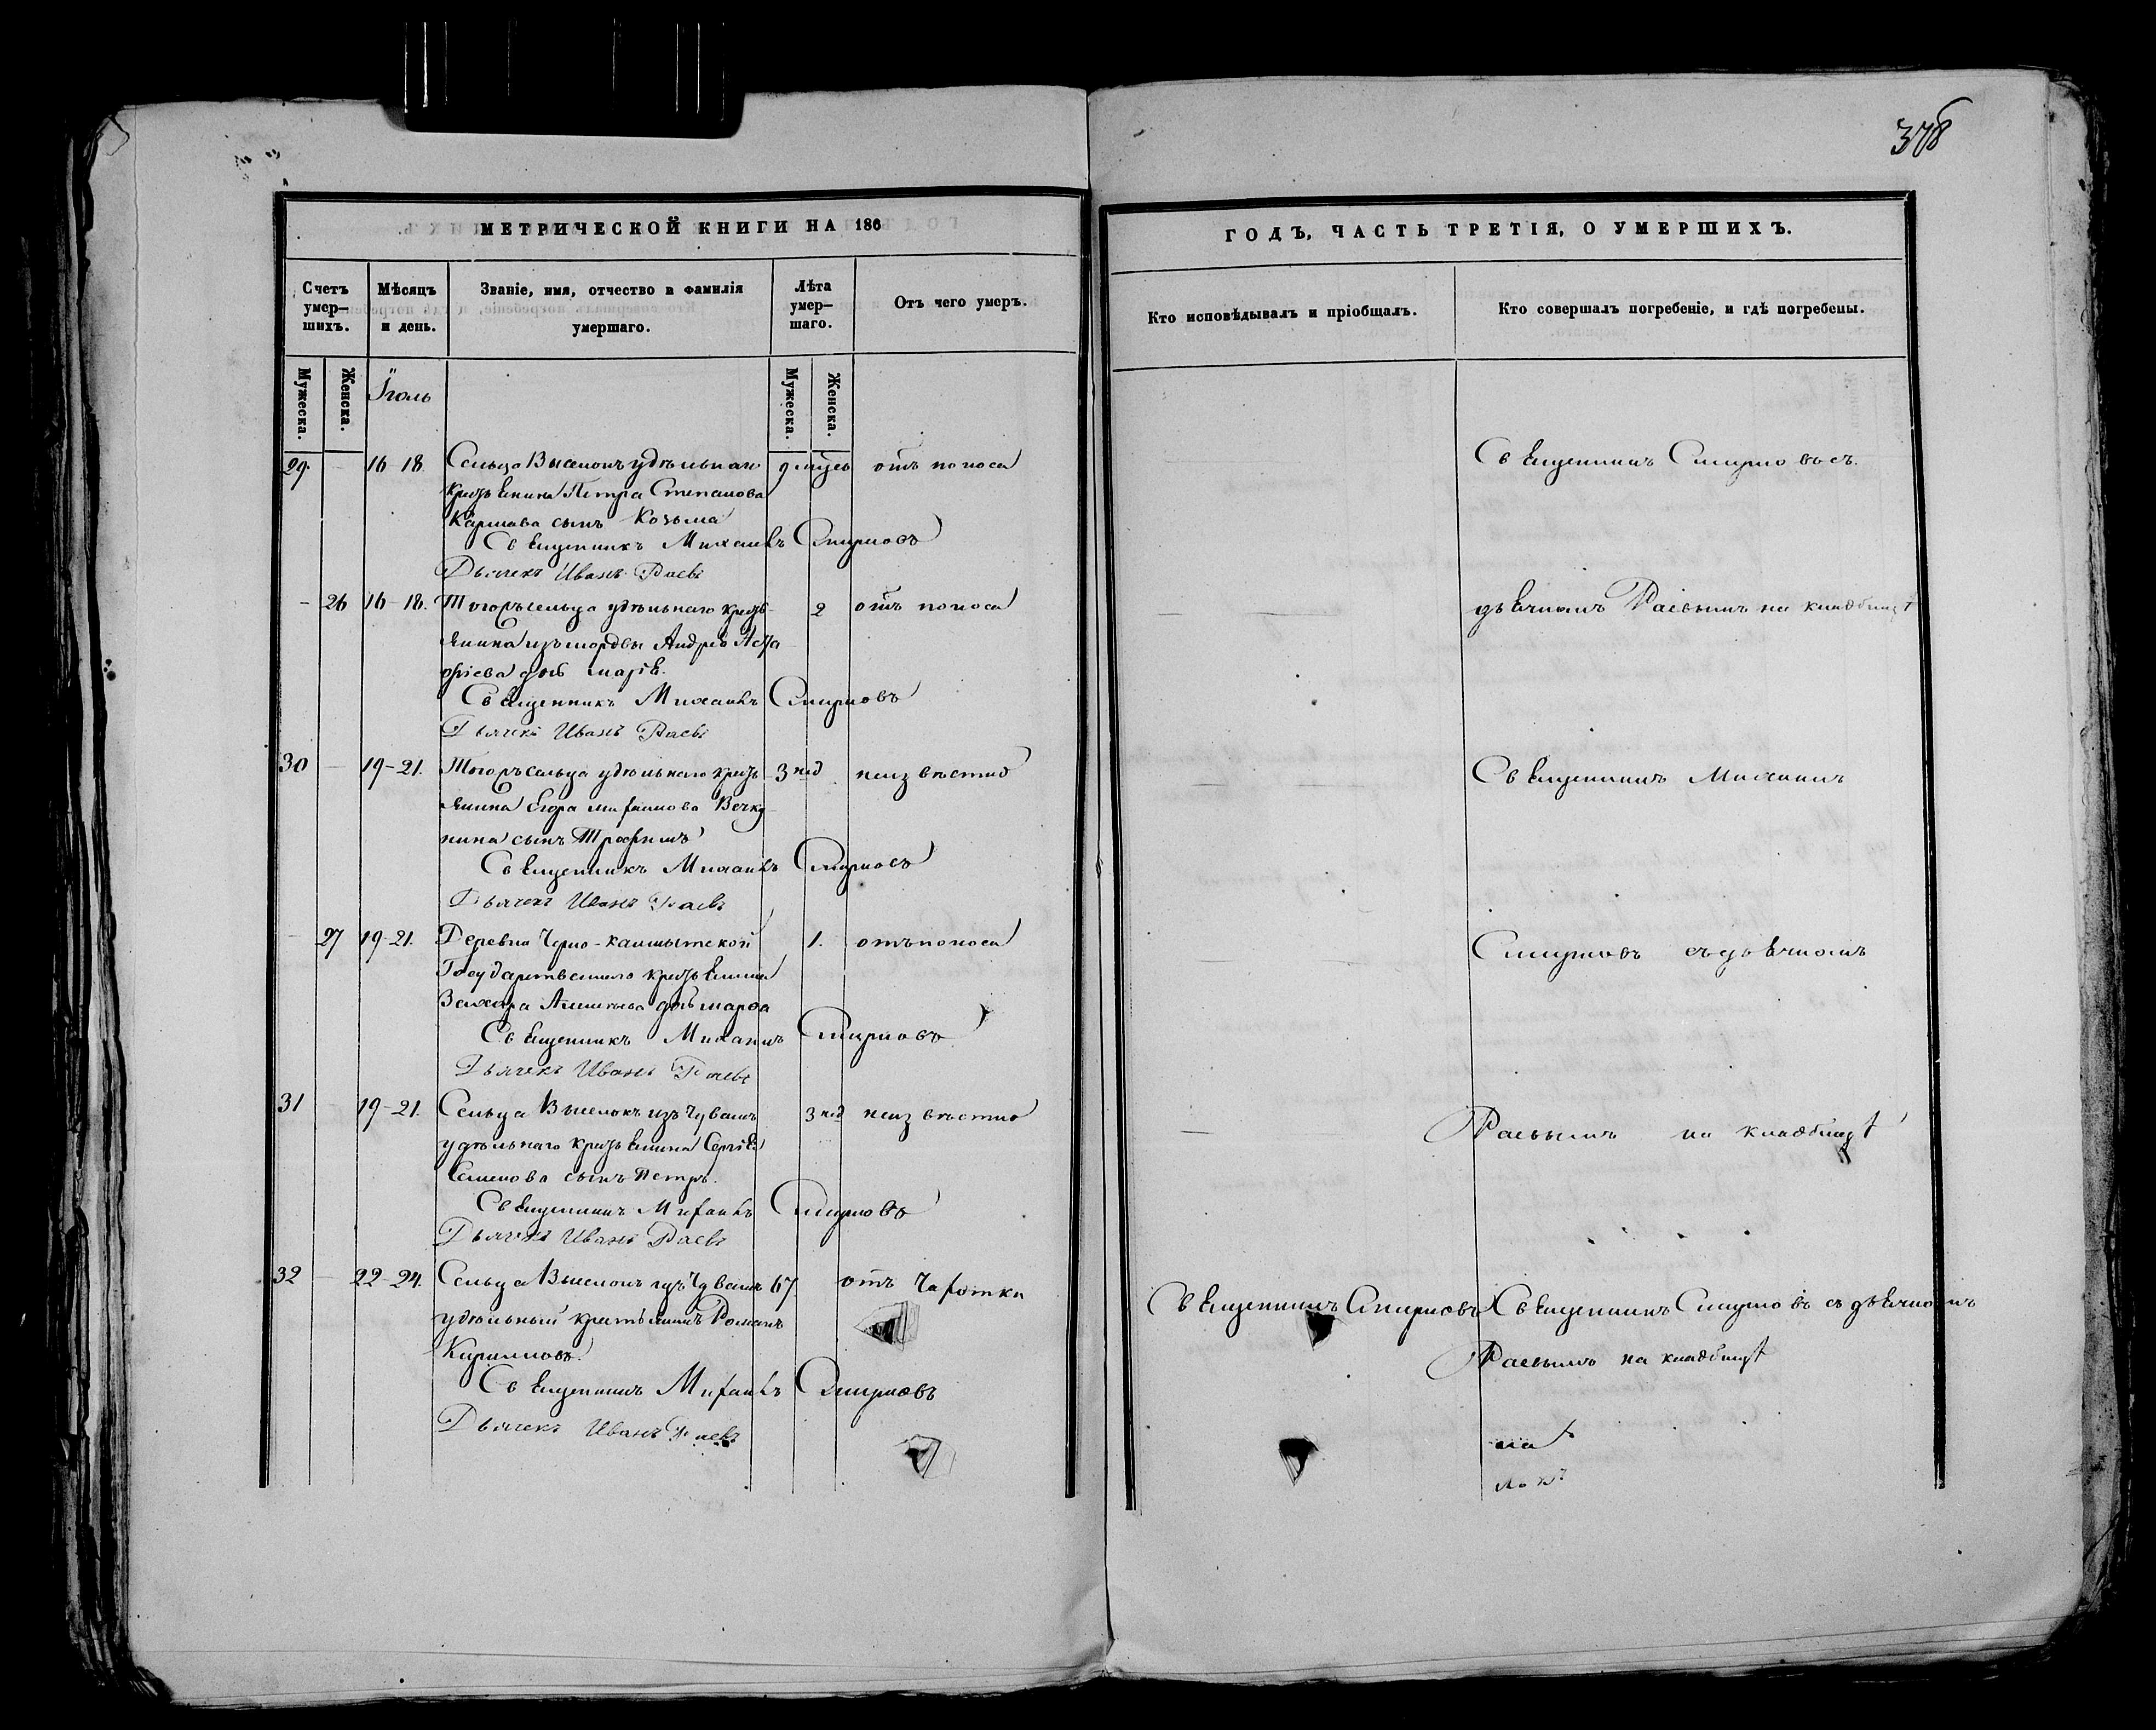 378
МЕТРИЧЕСКОЙ КНИГИ НА 186
ГОДЪ, ЧАСТЬ ТРЕТІЯ, О УМЕРШИХЪ.
Счетъ умер-шихъ.
Мѣсяцъ и день.
Званіе, имя, отчество и фамилія умершаго.
Лѣта умер-шаго.
Отъ чего умеръ.
Кто исповѣдывалъ и пріобщалъ.
Кто совершалъ погребеніе, и гдѣ погребены.
Мужеска.
Женска.
Іюль
Мужеска.
Женска.
29. 16-18. Сельца Выселокъ удѣльнаго 9 отъ поноса
крестьянина Петра Степанова
сынъ Козьма
Священникъ Михаилъ Смирновъ
Дьячекъ Иванъ Раевъ
Священникъ Смирновъ съ
- 26 16-18. Тогожъ сельца удѣльнаго кресть- 2 отъ поноса
янина изъ мордвы Андрея
дочь Марія.
Священникъ Михаилъ Смирновъ
Дьячекъ Иванъ Раевъ
дьячкомъ Раевымъ на кладбищѣ
30 - 19-21. Тогожъ сельца удѣльнаго кресть- 3 нед неизвѣстно
янина Егора
нина сынъ Трофимъ
Священникъ Михаилъ Смирновъ
Дьячекъ Иванъ Раевъ
Священникъ Михаилъ
27 19-21. Деревни Черно- 1. отъ поноса
Государственнаго крестьянина
Захара дочь Марѳа
Священникъ Михаилъ Смирновъ
Дьячекъ Иванъ Раевъ
Смирновъ съ дьячкомъ
31 19-21. Сельца Выселокъ изъ Чувашъ 3 нед неизвѣстно
удѣльнаго крестьянина Сергѣя
Семенова сынъ Петръ.
Священникъ Михаилъ Смирновъ
Дьячекъ Иванъ Раевъ
Раевымъ на кладбищѣ
32 - 22-24. Сельца Выселокъ изъ Чувашъ 67 отъ Чахотки
удѣльный крестьянинъ Романъ
Кириловъ.
Священникъ Михаилъ Смирновъ
Дьячекъ Иванъ Раевъ
Священникъ Смирновъ
Священникъ Смирновъ съ дьячкомъ
Раевымъ на кладбищѣ